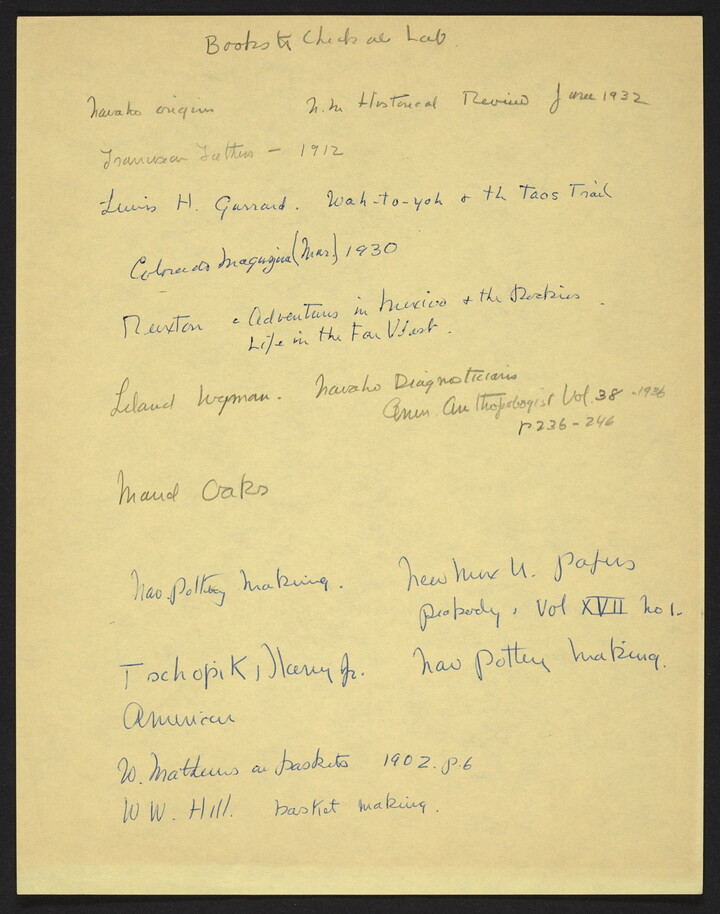 Books to Check at Lab
Navaho origins N.M Historical Review June 1932
Franciscan Fathers - 1912
Lewis H. Garrard. Wah-to-yoh & the Taos Trail
Colorado Magazine (Mar.) 1930
Ruxton - Adventures in Mexico & the Rockies.
Life in the Far West.
Leland Wyman. Navaho Diagnosticians
Amer. Anthopologist Vol. 38 - 1936
p 236 - 246
Maud Oaks
Nav. Pottery Making. New Mex U. papers
peabody, Vol XVII no 1.
Tschopik, Harry Jr. Nav Pottery Making.
American
W. Mathews on baskets 1902. p. 6
W W. Hill. basket making.